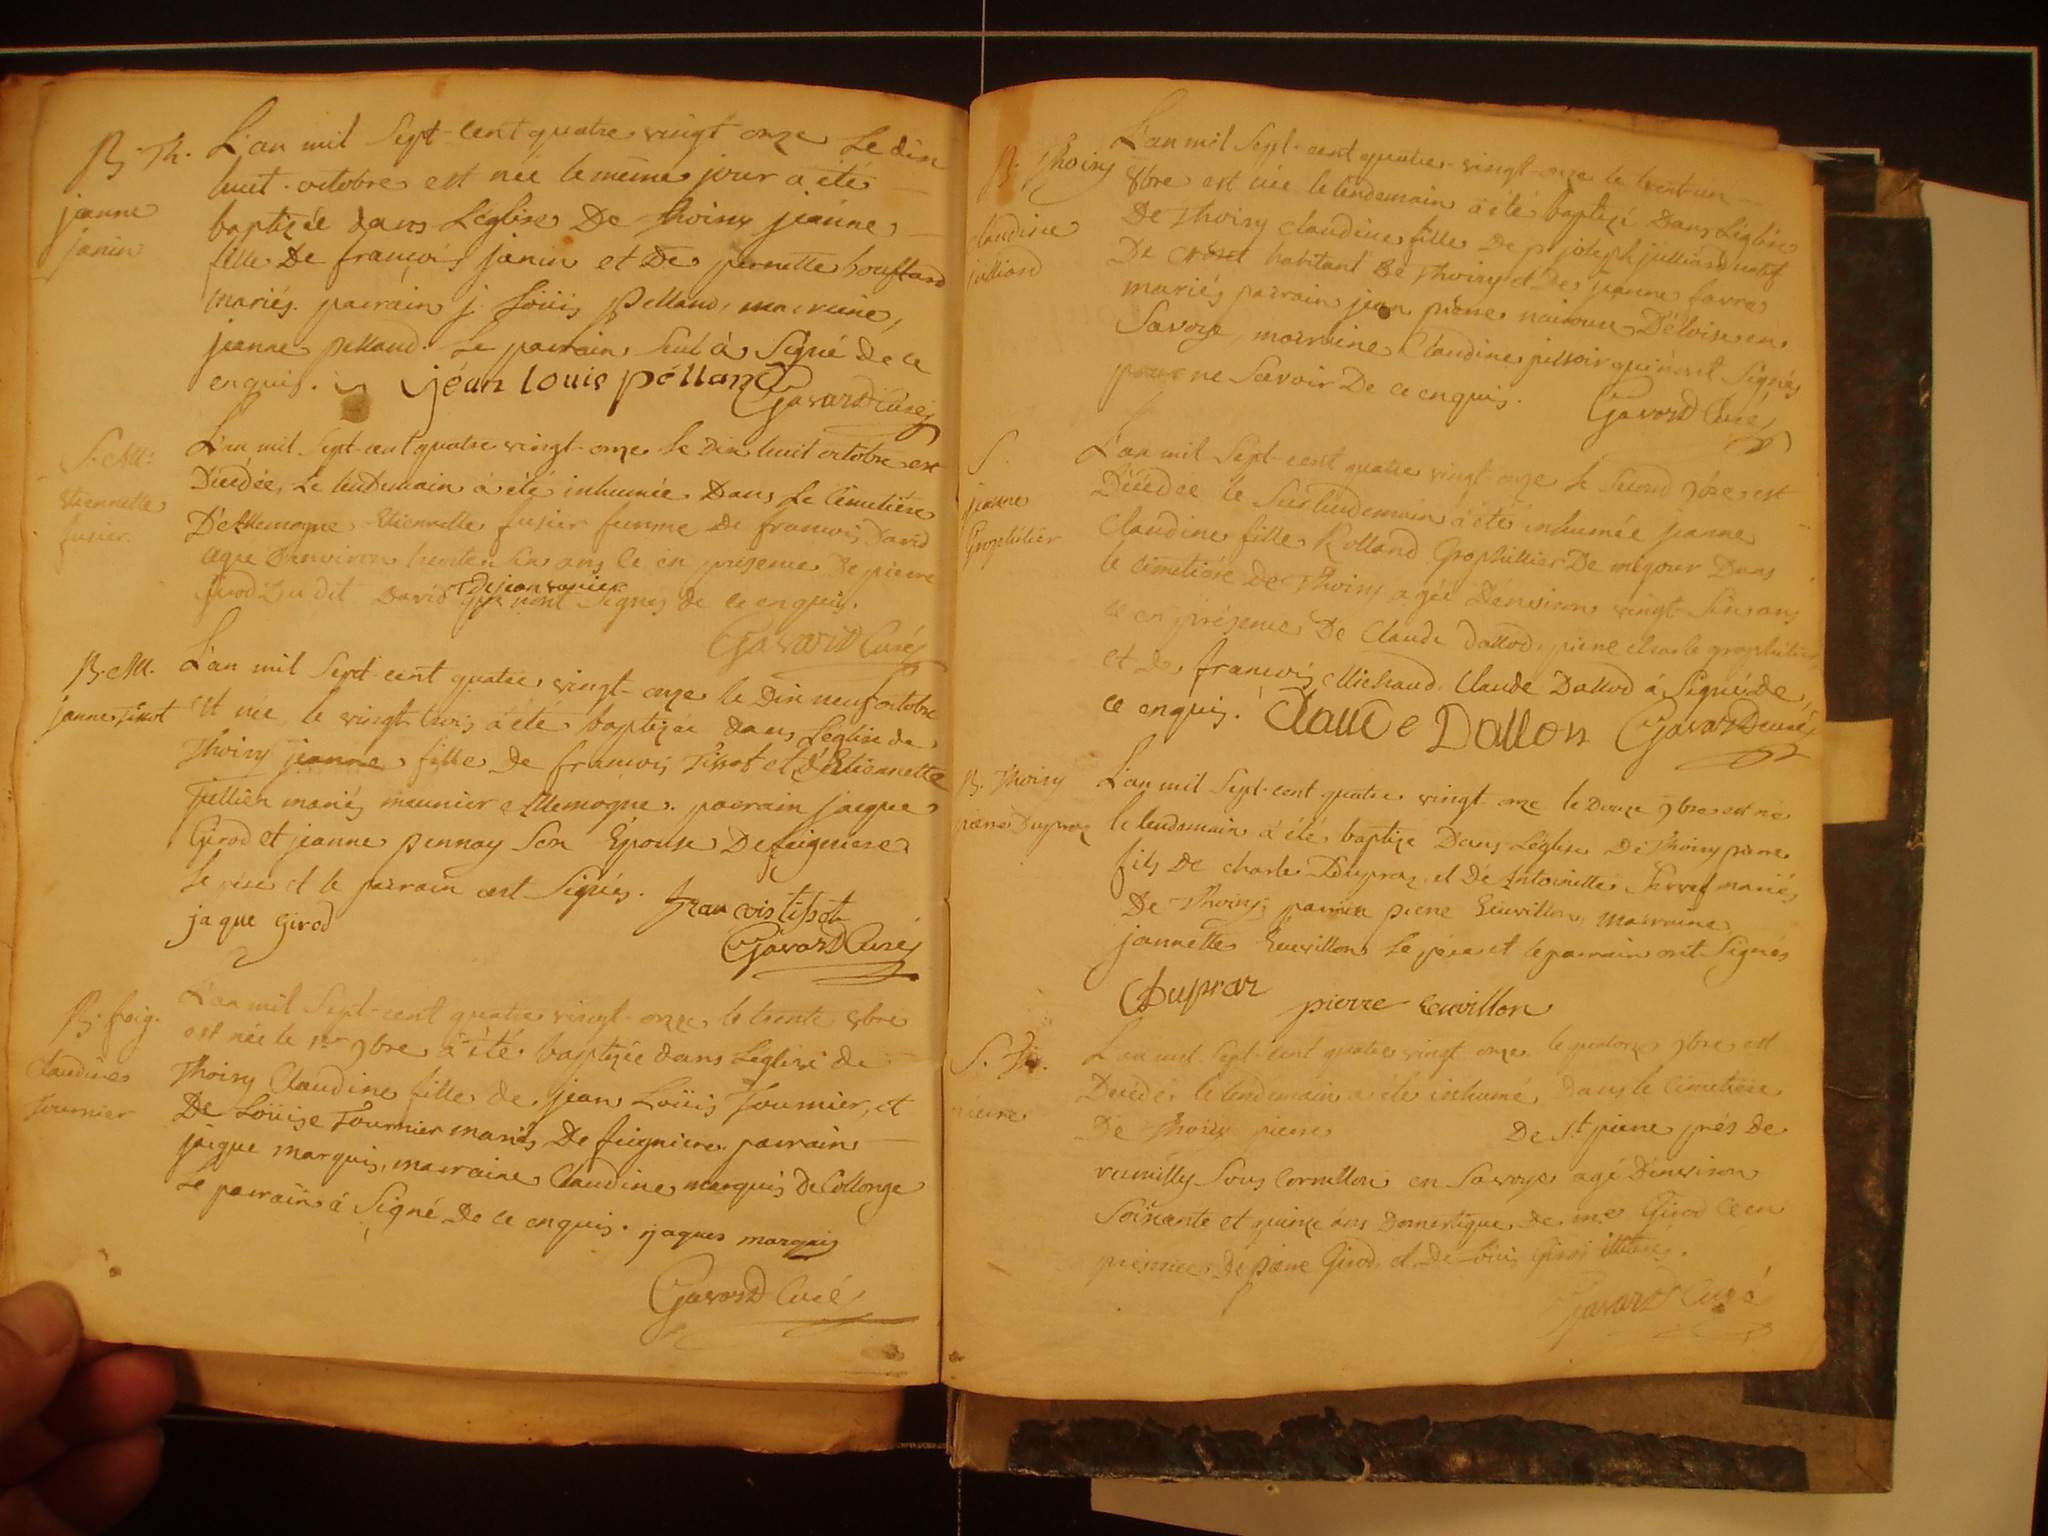 B. Th.
jeanne
janin
L'an mil Sept-cent quatre vingt onze Le dix
huit octobre est née le même jour a été
baptizée dans L'église De Thoiry jeanne
fille De françois janin et De pernette bouffard
mariés. parrain j. Loüis Pelland, marraine,
jeanne pelland. Le parrain seul à Signé de ce
enquis. jéan louis pélland
Gavard Curé
S. All:
Etiennette
fusier.
L'an mil Sept-cent quatre vingt-onze le Dix huit octobre est
Décédée, Le lendemain à été inhumée Dans Le Cimetière
D'Allemogne Etiennette fusier femme De francois David
agée D'environ trente six ans ce en présence De pierre
girod Du dit David et De jean vanier qui n'ont Signés de ce enquis.
Gavard Curé
B. All.
janne Tissot
L'an mil Sept cent quatre vingt-onze le Dix neuf octobre
est née, le vingt trois à été baptizée dans L'église de
Thoiry jeanne fille De francois Tissot et d'Etiennette
Jullien mariés meunier Allemogne. parrain jacque
Girod et jeanne pennay Son Epouse De feigniere
Le père et le parrain ont Signés. francois tissot
jaque girod
Gavard Curé
B. feig.
Claudine
Fournier
L'an mil Sept-cent quatre vingt-onze le trente 8bre
est née le 1er 9bre à été baptizée dans L'eglise de
Thoiry Claudine fille de jean Loüis Fournier, et
De Loüise Fournier mariés De feigniere parrain
jacque marquis, marraine Claudine marquis De Collonge
Le parrain à Signé De ce enquis. jaques marquis
Gavard Curé
B. Thoiry
Claudine
julliard
L'an mil Sept-cent quatre-vingt-onze le trent-un
8bre est née le lendemain à été baptizé Dans L'église
De Thoiry Claudine fille De p. joseph julliard natif
De habitant De Thoiry et De jeanne favre
mariés parrain jean pierre D'éloise en
Savoye, marraine Claudine qui n'ont Signés
pour ne Savoir De ce enquis.
Gavard Curé
S.
jeanne
Grophilier
L'an mil Sept-cent quatre vingt-onze le Second 9bre est
Décédée le Surlendemain à été inhumée jeanne
Claudine fille Rolland Grophillier De Dans
le Cimetière De Thoiry agée D'environ vingt-six ans
ce en présence De Claude Dallod, pierre Charle grophilier
et De francois Michaud. Claude Dallod à Signé de
ce enquis. Claude Dallon Gavard curé
B. Thoiry
pierre Dupraz
L'an mil Sept-cent quatre vingt onze le Douze 9bre est né
le lendemain à été baptizé Dans L'église De Thoiry pierre
fils De Charle Dupraz et De Antoinette mariés
De Thoiry parrain pierre Euvillon marraine
jannette Euvillon Le père et le parrain ont Signés
Dupraz pierre euvillon
S. Th.
pierre
L'an mil Sept-cent quatre vingt onze le quatorze 9bre est
Décédé le lendemain a été inhumé Dans le Cimetière
De Thoiry pierre De St pierre prés De
rumilly Sous Cornillon en Savoye agé D'environ
Soixante et quinze ans Domestique De me Girod ce en
présence De pierre Girod et De Loüis Girod illitérés.
Gavard Curé